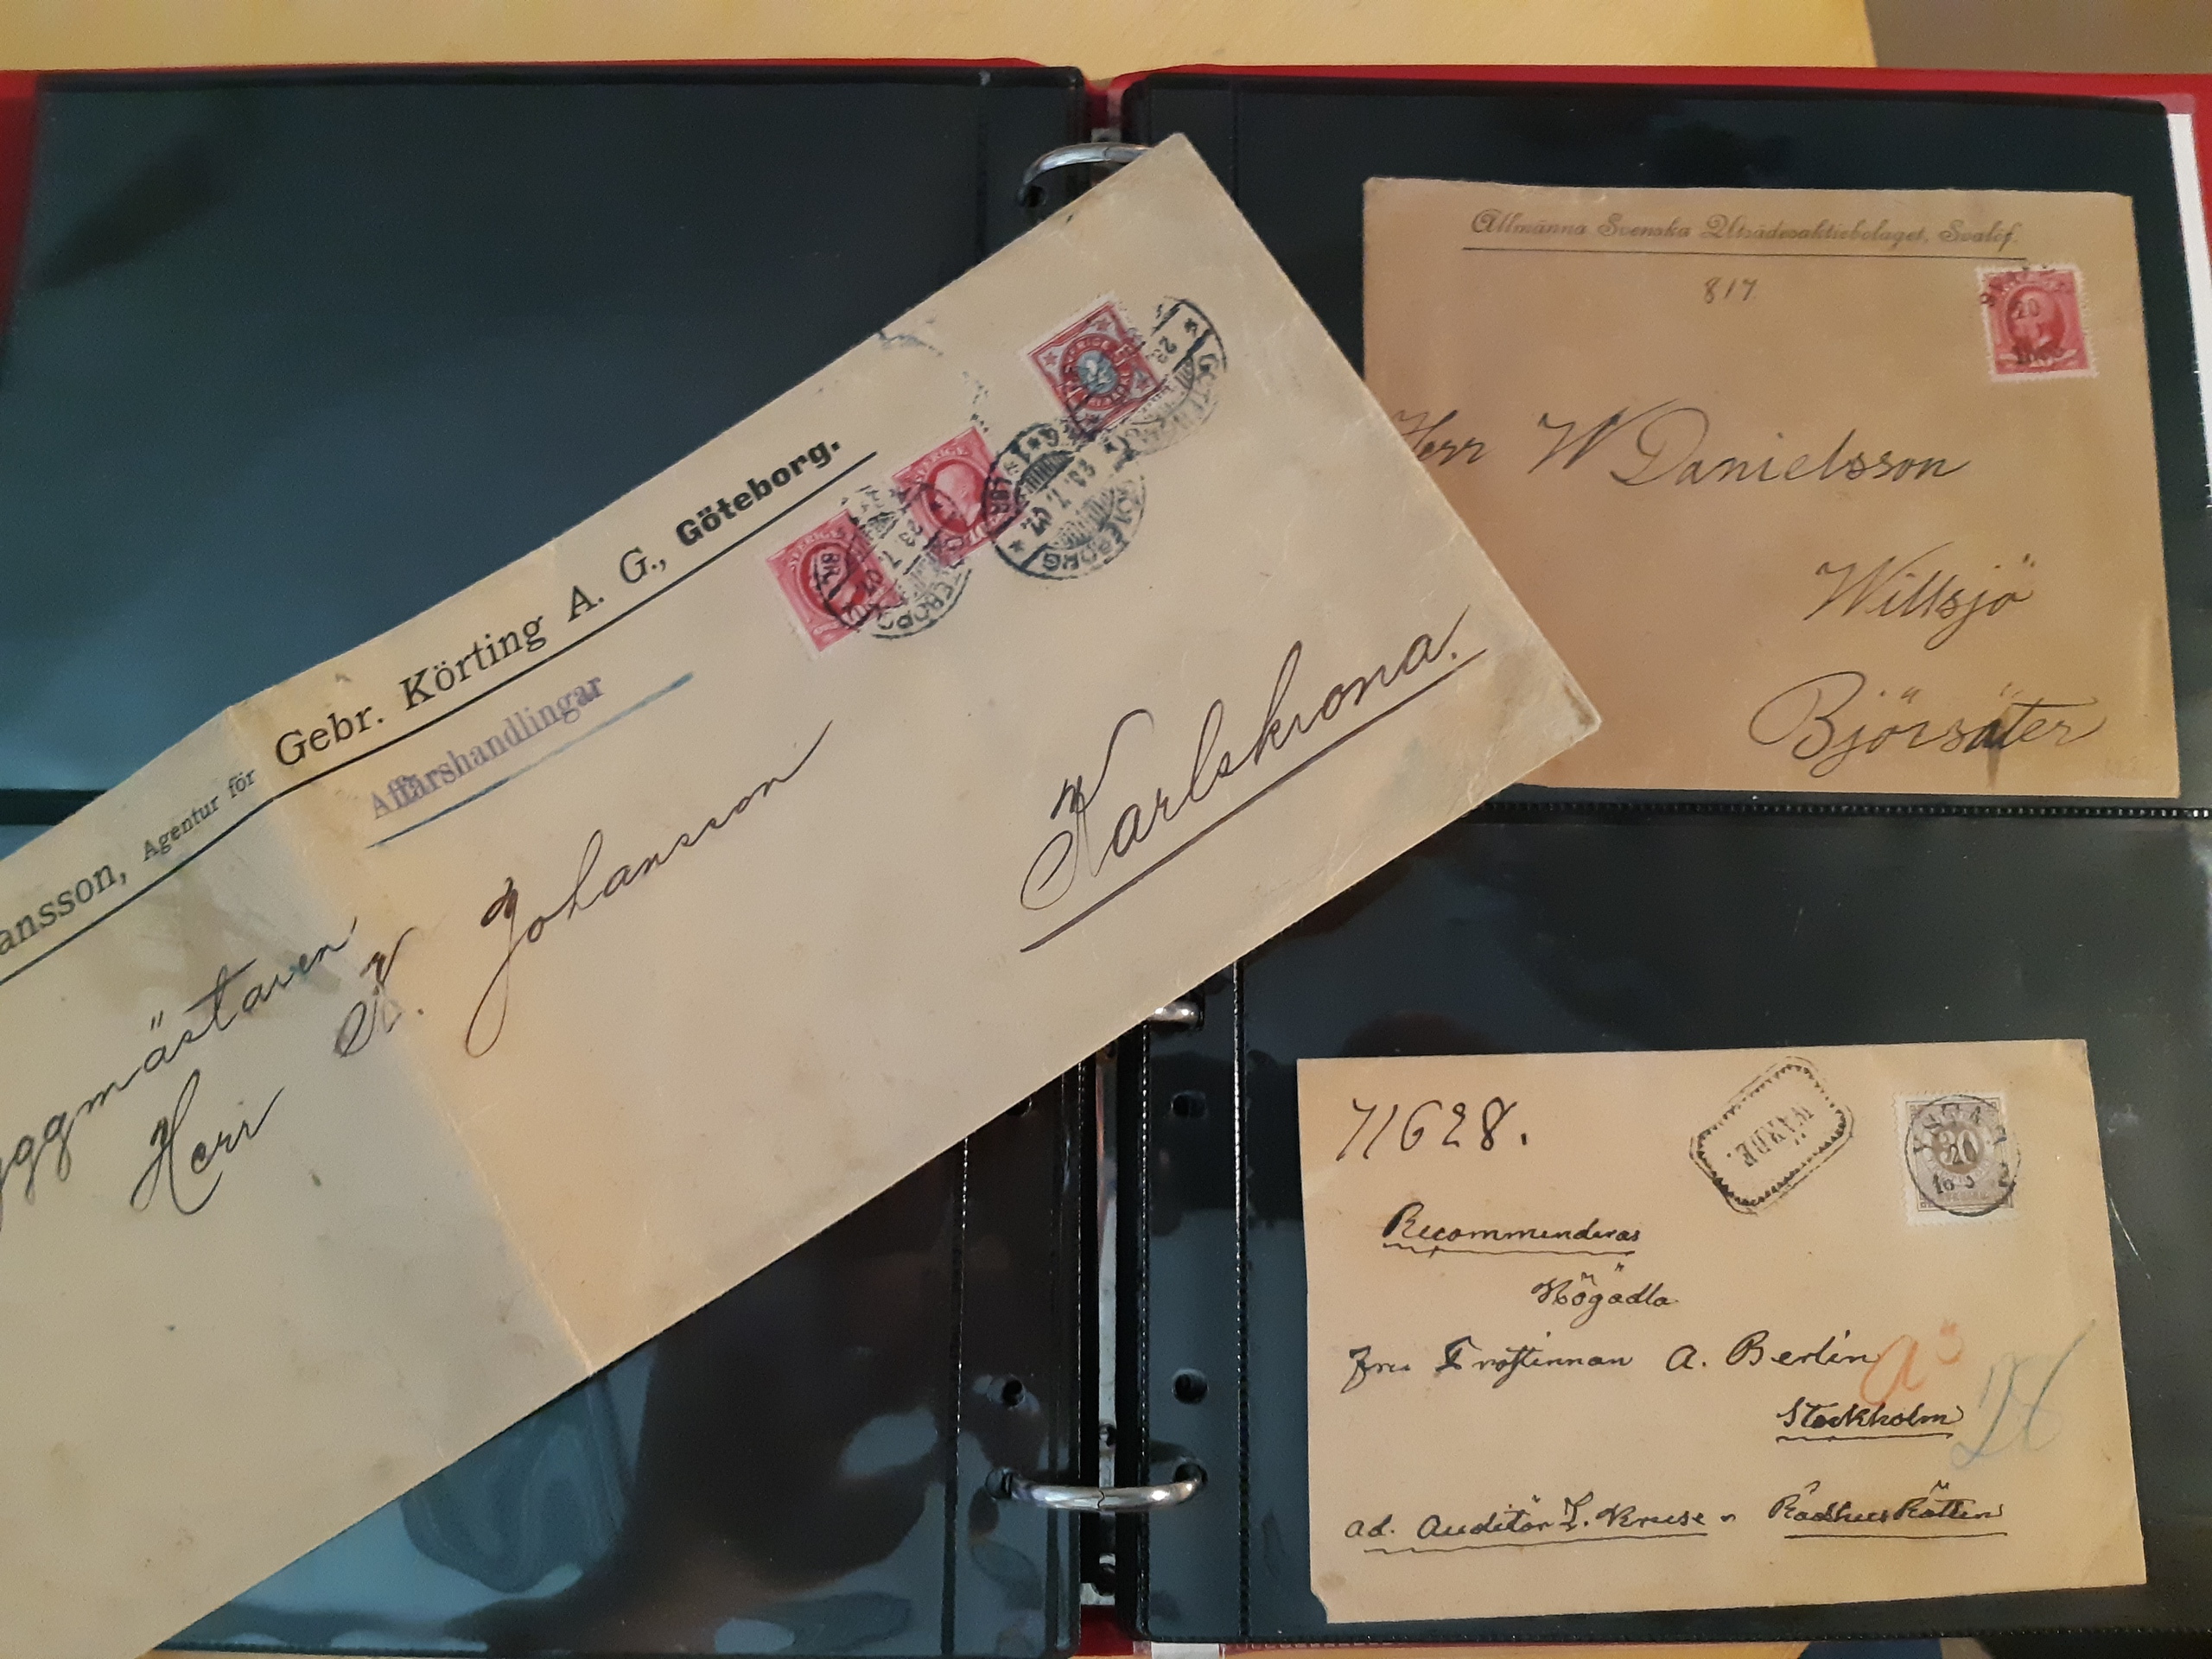 ansson, Agentur för Gebr. Körting A. G., Göteborg.
Affärshandlingar
yggmästaren
Herr K. Johansson
Karlskrona.
SVERIGE
GÖTEBORG
23. 7. 07
Allmänna Svenska Utsädesaktiebolaget, Svalöf.
817
Herr W Danielsson
Willsjö
Björsäter
20
71628.
WÄRDE.
30
20
Recommenderas
Högädla
Fru A. Berlin
Stockholm
ad. Auditör L. Kruse - Rådhus Rätten